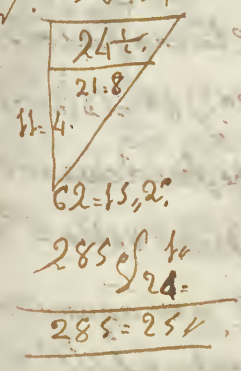 24½.
21=8
11=4.
62=15,,2.
285 1,,
24=
285=25,,